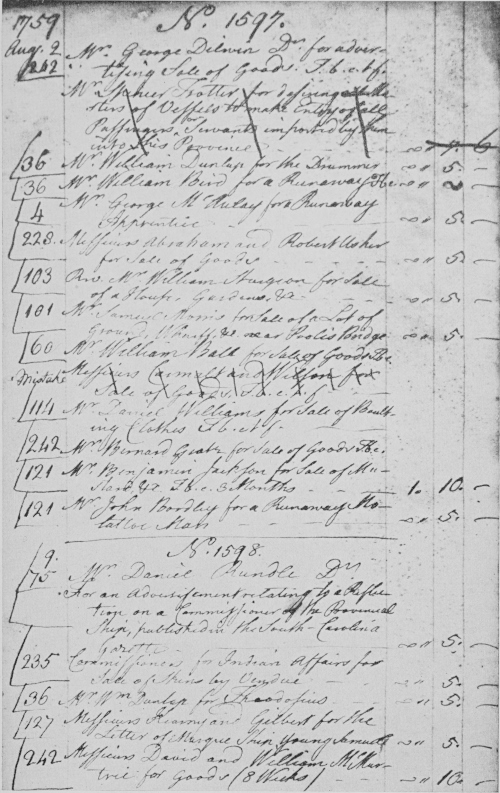 1759 No. 1597.
Aug. 2. Mr. George Dilwin Dr. for adver-
242 tising Sale of Goods. T. b. c. tf.
Mr. Spencer Trotter for desiring Ma-
sters of Vessels to make Entry of all
Passengers, Servants imported by them
into this Province - - " 7. 6
36 Mr. William Dunlap for the Drummer " 5. -
36 Mr. William Bird for a Runaway T.b.c. "
4 Mr. George McAulay for a Runaway
Apprentice - " 5. -
228. Messieurs Abraham and Robert Usher
for Sale of Goods - " 5. -
103 Rev. Mr. William Sturgeon for Sale
of a House, Gardens, &c. - - -
101 Mr. Samuel Morris for Sale of a Lot of
Ground, Wharff, &c. near Pool's Bridge " 5. -
60 Mr. William Ball for Sale of Goods T.b.c.
Mistake Messieurs Carmelt and Wilson for
Sale of Goods. T. b. c. tf.
114 Mr. Daniel Williams for Sale of Boult-
ing Clothes T. b. c. tf.
242 Mr. Bernard Gratz for Sale of Goods T.b.c.
121 Mr. Benjamin Jackson for Sale of Mu-
stard &c. T. b. c. 3 Months - - 1. 10. -
121 Mr. John Bordley for a Runaway Mo-
lattoe Man - " 5. -
No. 1598.
9.
75 Mr. Daniel Rundle Dr.
For an Advertisement relating to a Reflec-
tion on a Commissioner of the Provincial
Ship, published in the South-Carolina
Gazette - " 5. -
235 Commissioners for Indian Affairs for
Sale of Skins by Vendue - " 5. -
36 Mr. Wm. Dunlap for Theodosius - " 5. -
127 Messieurs Kearny and Gilbert for the
Letter of Marque Ship Young Samuel " 5. -
242 Messieurs David and William McMur-
trie for Goods (8 Weeks) - " 10. -